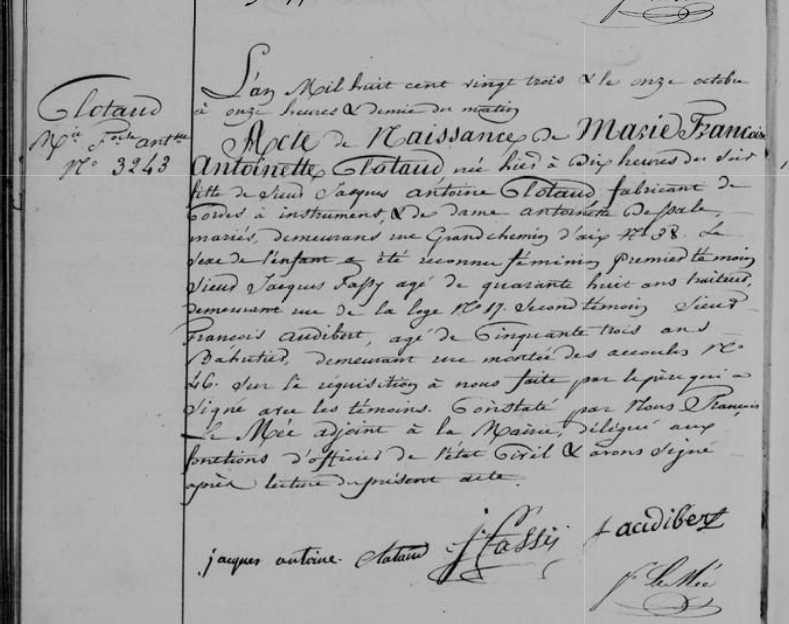 L'an Mil huit cent vingt trois & le onze octobre
à onze heures & demie du matin
Clotaud
Mie Foise Antte
N° 3243
Acte de Naissance de Marie Francoise
Antoinette Clotaud, née hier à Dix heures du soir
fille de sieur Jacques Antoine Clotaud fabricant de
Cordes à instrumens, & de dame antoinette
mariés, demeurans rue Grand chemin d'aix N° 38. Le
sexe de l'enfant a été reconnu féminin premier témoin
sieur Jacques Fassy agé de quarante huit ans traiteur,
demeurant rue de la loge N° 17. Second témoin Sieur
François audibert, agé de Cinquante trois ans
Bahutier, demeurant rue montée des accoules N°
46. Sur la réquisition à nous faite par le père qui a
signé avec les témoins. Constaté par Nous François
Le Mée adjoint à la Mairie, délégué aux
fonctions d'officier de l'état Civil & avons signé
après lecture du présent acte.
jacques antoine Clotaud
f audibert
fs Le Mée